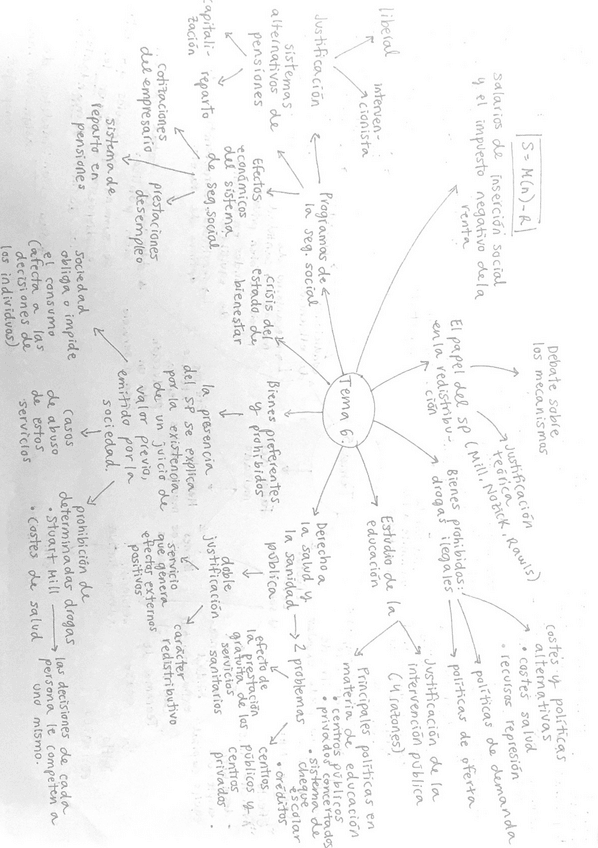 Tema 6.
salarios de inserción social
y el impuesto negativo de la
renta
S = M(n) - R
El papel del SP
en la redistribu-
ción
Debate sobre
los mecanismos
Justificación
teórica
(Mill, Nozick, Rawls)
Bienes prohibidos:
drogas ilegales
costes y políticas
alternativas
• costes salud
• recursos represión
políticas de demanda
políticas de oferta
Estudio de la
educación
Justificación de la
intervención pública
(4 razones)
Principales políticas en
materia de educación
• centros públicos
• privados concertados
• sistema de
cheque
escolar
• créditos
Derecho a
la salud y
la sanidad → 2 problemas
pública
efecto de
la prestación
gratuita de los
servicios
sanitarios
centros
públicos y
centros
privados
doble
justificación
servicio
que genera
efectos externos
positivos
carácter
redistributivo
Bienes preferentes
y prohibidos
la presencia
del SP se explica
por la existencia
de un juicio de
valor previo,
emitido por la
sociedad.
sociedad
obliga o impide
el consumo
(afecta a las
decisiones de
los individuos)
casos
de abuso
de estos
servicios
prohibición de
determinadas drogas
• Stuart Mill → las decisiones de cada
persona le competen a
uno mismo.
• Costes de salud
crisis del
estado de
bienestar
Programas de
la seg. social
Justificación
liberal
interven-
cionista
sistemas
alternativos de
pensiones
capitali-
zación
reparto
Efectos
económicos
del sistema
de seg. social
cotizaciones
del empresario
sistema de
reparto en
pensiones
prestaciones
desempleo